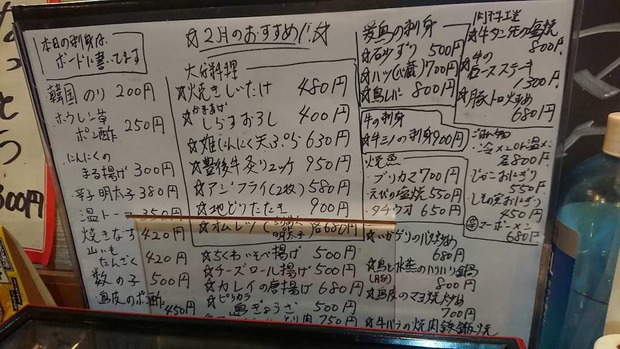 本日の刺身は
ボードに書いてます
韓国のり 200円
ホウレン草
ポン酢 250円
にんにくの
まる揚げ 300円
辛子明太子 380円
温ト 350円
焼きなす 420円
山いも
たんざく 420円
数の子 500円
鳥皮のポン酢
450円
☆2月のおすすめ☆
大分料理
☆焼きしいたけ 480円
しらすおろし 400円
☆姫にんにく天ぷら 630円
☆豊後牛炙りユッケ 950円
☆アジフライ(2枚) 580円
☆地どりたたき 900円
☆オムレツ 各680円
☆ちくわいそべ揚げ 500円
☆チーズロール揚げ 500円
☆カレイの唐揚げ 680円
☆ピリカラ
鳥ぎょうざ 500円
750円
愛鳥の刺身
☆石少ずり 500円
☆ハツ(心蔵) 700円
☆鳥レバー 800円
牛の刺身
☆牛ミノの刺身 900円
焼魚
・ブリカマ 700円
・えびの塩焼 550円
・タチウオ 650円
☆いかゲソのバタ炒め
680円
☆鳥と水菜のハリハリ鍋
800円
☆鳥皮のマヨ焼炒め
700円
☆牛バラの焼肉鉄鍋焼
☆牛タン先の塩焼
800円
☆牛の
ロースステーキ
1300円
☆豚トロ炒め
680円
ごはん物
・冷メン or 温メン
各800円
・じゃこおにぎり
550円
・しその実おにぎり
450円
マーボーメン
680円
300円